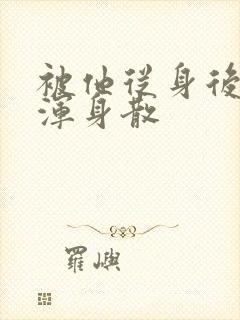 被他從身後
渾身散
羅嶼